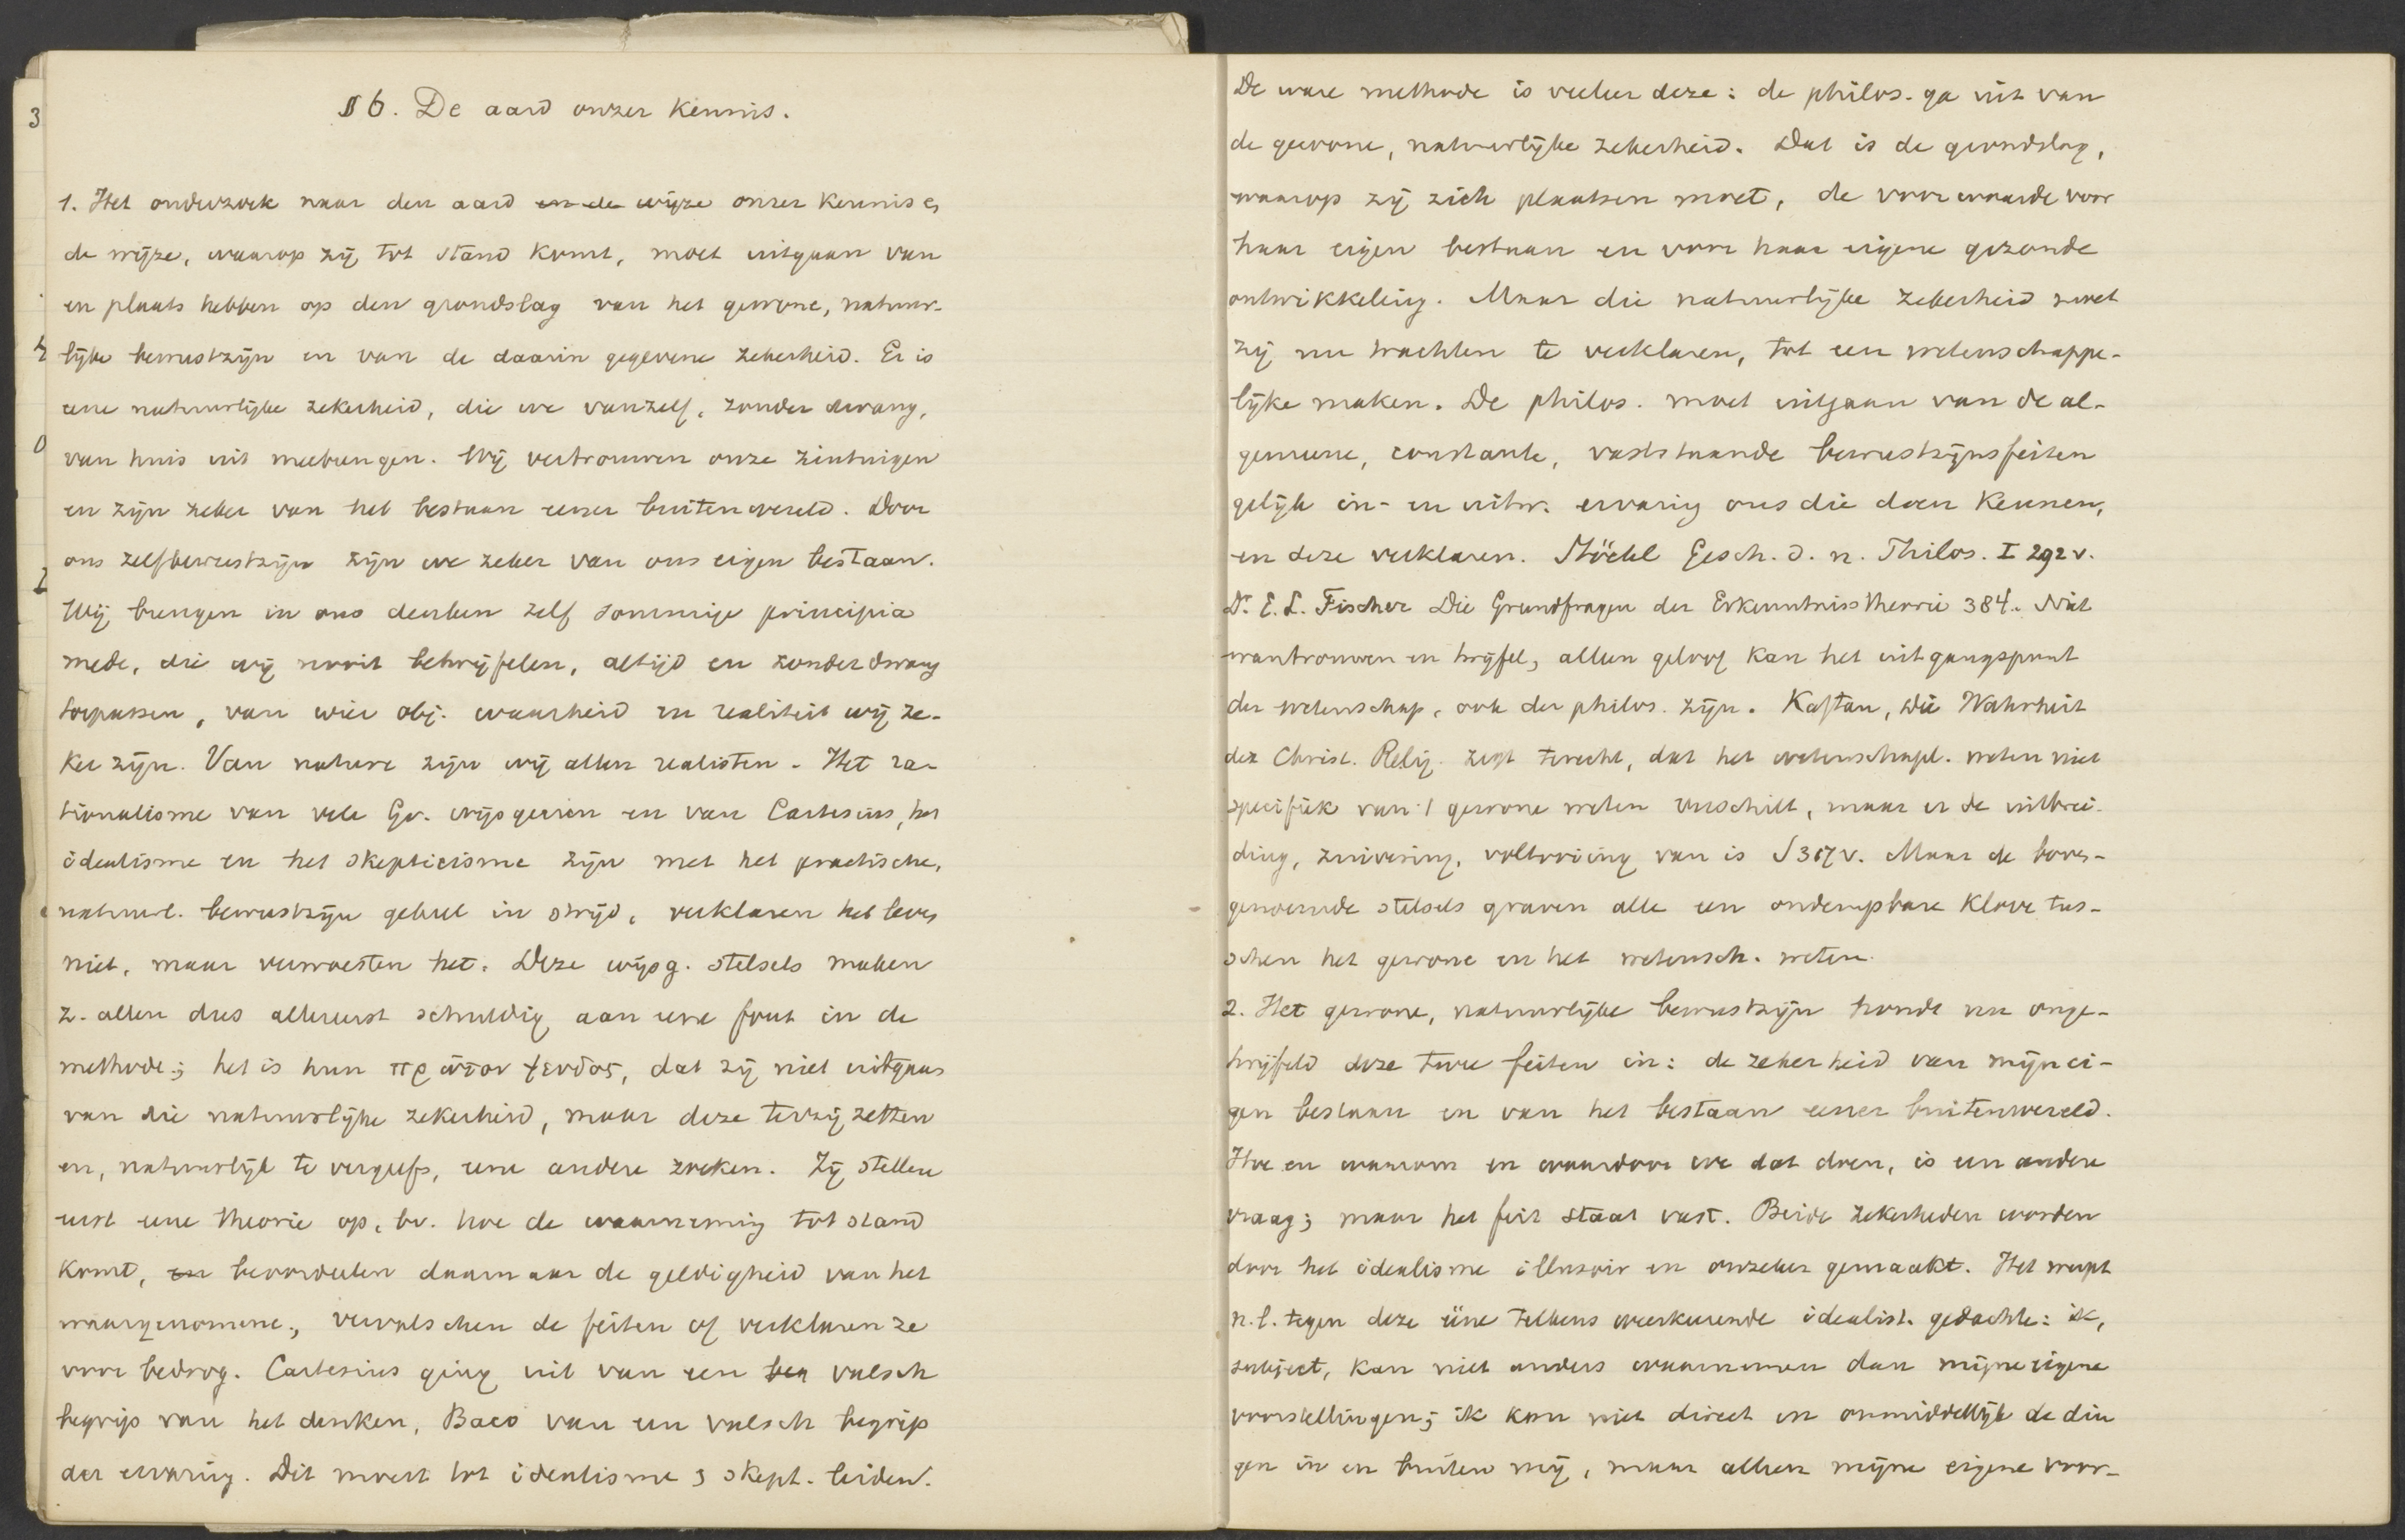 § 6. De aard onzer kennis.
1. Het onderzoek naar den aard en de wijze onzer kennis &
de wijze, waarop zij tot stand komt, moet uitgaan van
en plaats hebben op den grondslag van het gewone, natuur-
lijke bewustzijn en van de daarin gegevene zekerheid. Er is
eene natuurlijke zekerheid, die we vanzelf, zonder dwang,
van huis uit meebrengen. Wij vertrouwen onze zintuigen
en zijn zeker van het bestaan eener buitenwereld. Door
ons zelfbewustzijn zijn we zeker van ons eigen bestaan.
Wij brengen in ons denken zelf sommige principia
mede, die wij nooit betwijfelen, altijd en zonder dwang
toepassen, van wier obj. waarheid en realiteit wij ze-
ker zijn. Van nature zijn wij allen realisten. Het ra-
tionalisme van vele Gr. wijsgeeren en van Cartesius, het
idealisme en het skepticisme zijn met het practische,
natuurl. bewustzijn geheel in strijd, verklaren het leven
niet, maar verwoesten het. Deze wijsg. stelsels maken
z. allen dus allereerst schuldig aan eene fout in de
methode; het is hun πρῶτον ψευδος, dat zij niet uitgaan
van die natuurlijke zekerheid, maar deze terzij zetten
en, natuurlijk te vergeefs, eene andere zoeken. Zij stellen
eerst eene theorie op, bv. hoe de waarneming tot stand
komt, en beoordeelen daarnaar de geldigheid van het
waargenomene, vervalschen de feiten of verklaren ze
voor bedrog. Cartesius ging uit van een valsch
begrip van het denken, Baco van een valsch begrip
der ervaring. Dit moest tot idealisme & skept. leiden.
De ware methode is veeleer deze: de philos. ga uit van
de gewone, natuurlijke zekerheid. Dat is de grondslag,
waarop zij zich plaatsen moet, de voorwaarde voor
haar eigen bestaan en voor haar eigene gezonde
ontwikkeling. Maar die natuurlijke zekerheid moet
zij nu trachten te verklaren, tot een wetenschappe-
lijke maken. De philos. moet uitgaan van de al-
gemeene, constante, vaststaande bewustzijnsfeiten
gelijk in- en uitw. ervaring ons die doen kennen,
en deze verklaren. Stöckl Gesch. d. n. Philos. I 292 v.
Dr. E. L. Fischer Die Grundfragen der Erkenntnisstheorie 384. Niet
wantrouwen en twijfel, alleen geloof kan het uitgangspunt
der wetenschap, ook der philos. zijn. Kaftan, die Wahrheit
der Christ. Relig. zegt terecht, dat het wetenschapl. weten niet
specifiek van 't gewone weten verschilt, maar er de uitbrei-
ding, zuivering, voltooiing van is S 317 v. Maar de boven-
genoemde stelsels graven alle een ondempbare klove tus-
schen het gewone en het wetensch. weten.
2. Het gewone, natuurlijke bewustzijn houdt nu onge-
twijfeld deze twee feiten in: de zekerheid van mijn ei-
gen bestaan en van het bestaan eener buitenwereld.
Hoe en waarom en waardoor we dat doen, is een andere
vraag; maar het feit staat vast. Beide zekerheden worden
door het idealisme illusoir en onzeker gemaakt. Het werpt
n.l. tegen deze ééne telkens weerkeerende idealist. gedachte: ik,
subject, kan niet anders waarnemen dan mijne eigene
voorstellingen; ik kan niet direct en onmiddellijk de din
gen in en buiten mij, maar alleen mijne eigene voor-